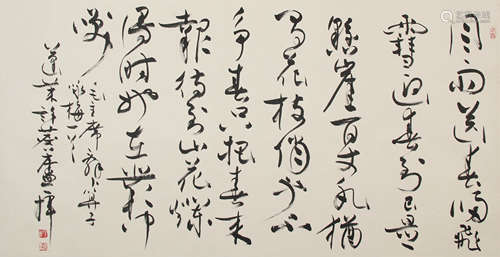 风雨送春归飛
雪迎春到已是
懸崖百丈冰猶
有花枝俏々也不
争春只把春来
報待到山花爛
漫时她在丛中
笑
毛主席词卜算子
咏梅
蓬莱